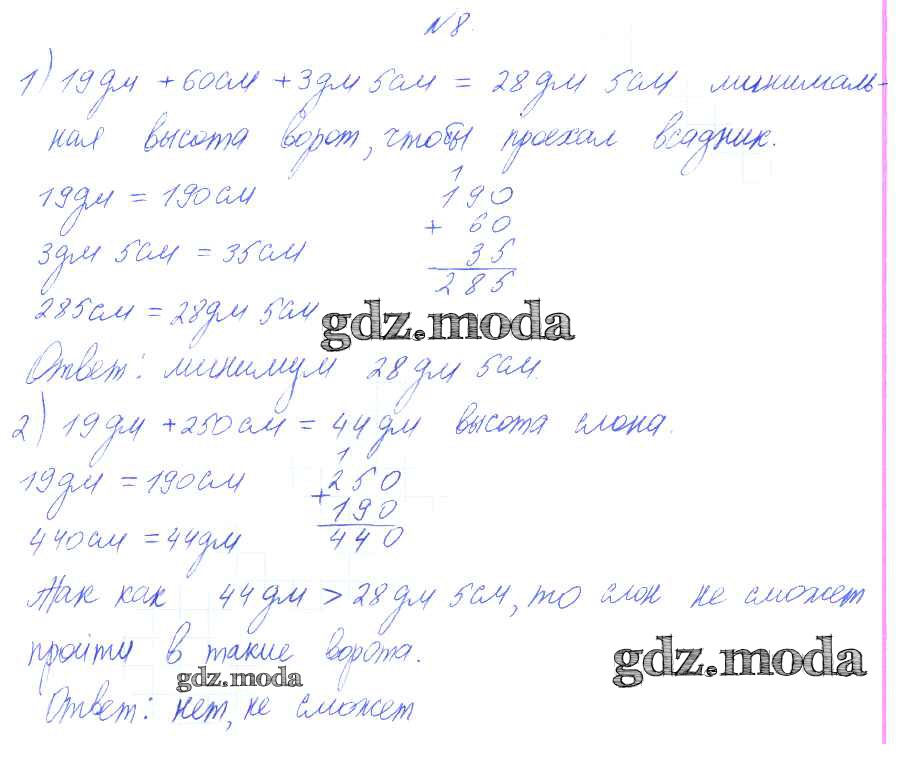 №8.
1) 19дм + 60см + 3дм 5см = 28дм 5см минималь-
ная высота ворот, чтобы проехал всадник.
19дм = 190см
3дм 5см = 35см
285см = 28дм 5см
1
190
+ 60
35
285
gdz.moda
Ответ: минимум 28дм 5см.
2) 19дм + 250см = 44дм высота слона.
19дм = 190см
440см = 44дм
1
250
+
190
440
Так как 44дм > 28дм 5см, то слон не сможет
пройти в такие ворота.
gdz.moda
gdz.moda
Ответ: нет, не сможет